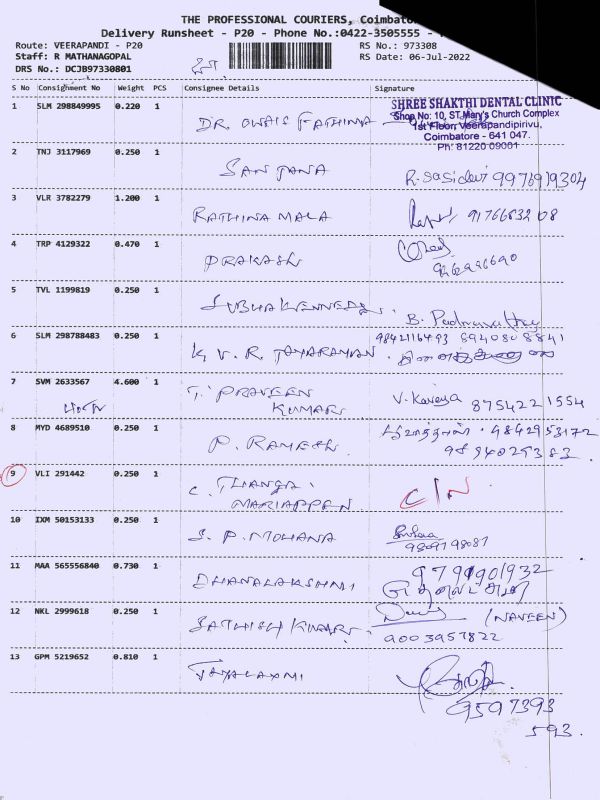 THE PROFESSIONAL COURIERS, Coimbato
Delivery Runsheet - P20 - Phone No.:0422-3505555 -
Route: VEERAPANDI - P20
RS No.: 973308
Staff: R MATHANAGOPAL
RS Date: 06-Jul-2022
DRS No.: DCJB97330801
S No Consignment No Weight PCS Consignee Details Signature
1 SLM 298849995 0.220 1 DR OWAIS FATHIMA
SHREE SHAKTHI DENTAL CLINIC
Shop No: 10, ST.Mary's Church Complex
1st Floor, Veerapandipirivu,
Coimbatore - 641 047.
Ph: 81220 09001
2 TNJ 3117969 0.250 1 SANJANA R. Sasidevi 9976919304
3 VLR 3782279 1.200 1 RATHINA MALA 9176683208
4 TRP 4129322 0.470 1 PRAKASH
5 TVL 1199819 0.250 1 SUBHA KENNEDY. B. Padmavathy
6 SLM 298788483 0.250 1 K. V. R. JAYARAMAN. 9842116493 8940808841
7 SVM 2633567 4.600 1 T. PRAVEEN
KUMAR V. Kaveya 8754221554
8 MYD 4689510 0.250 1 P. RAMESH. 9842953172
9894029383.
9 VLI 291442 0.250 1 C. THANGA.
MARIAPPEN C/N
10 IXM 50153133 0.250 1 S. P. MOHANA
9809798087
11 MAA 565556840 0.730 1 DHANALAKSHMI 9791901932
12 NKL 2999618 0.250 1 SATHISH KUMAR (NAVEEN)
9003957822
13 GPM 5219652 0.810 1 JAYALAXMI
9597393
593.